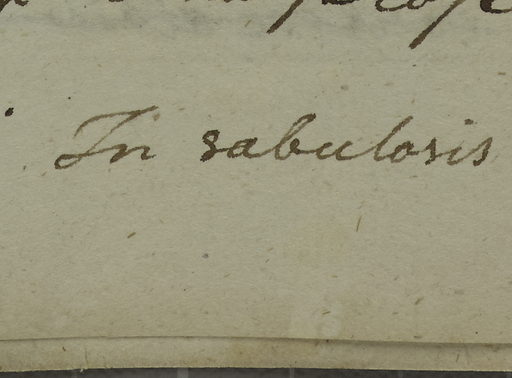 In sabulosis